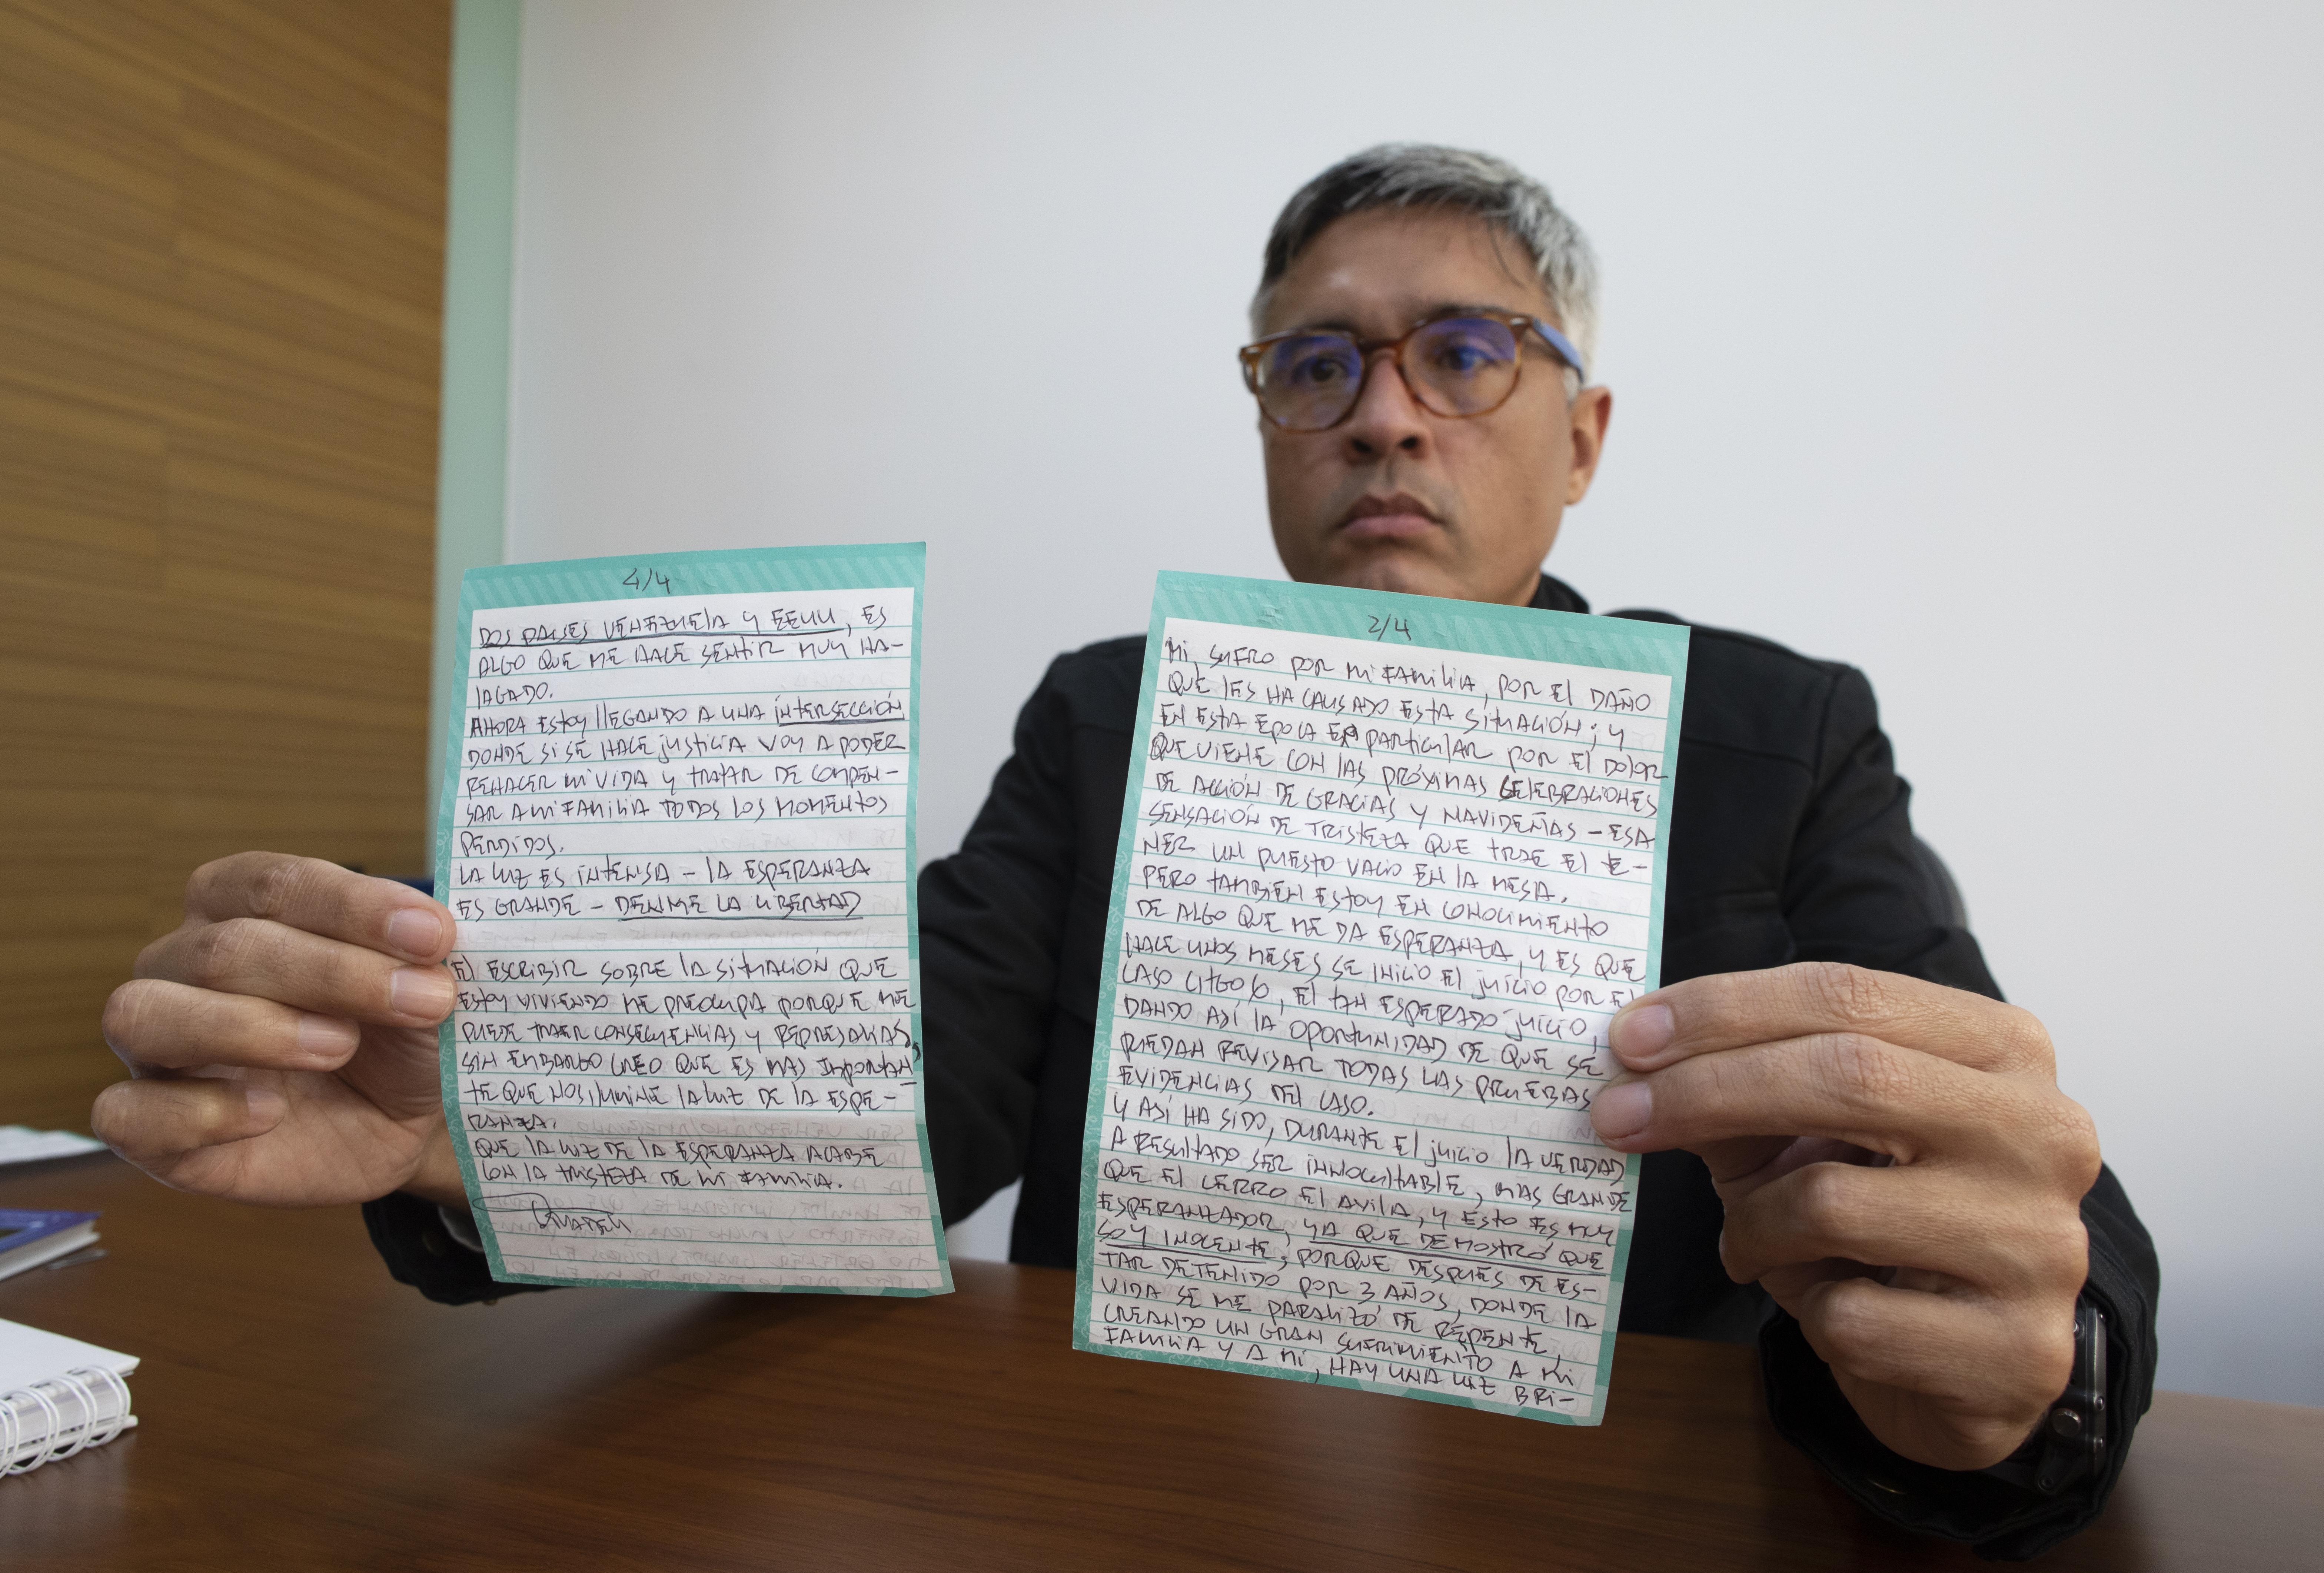 4/4
DOS PAISES VENEZUELA Y EEUU, ES
ALGO QUE ME HACE SENTIR MUY HA-
LAGADO.
AHORA ESTOY LLEGANDO A UNA INTERSECCIÓN
DONDE SI SE HACE JUSTICIA VOY A PODER
REHACER MI VIDA Y TRATAR DE COMPEN-
SAR A MI FAMILIA TODOS LOS MOMENTOS
PERDIDOS.
LA LUZ ES INTENSA - LA ESPERANZA
ES GRANDE - DENME LA LIBERTAD
EL ESCRIBIR SOBRE LA SITUACIÓN QUE
ESTOY VIVIENDO ME PREOCUPA PORQUE ME
PUEDE TRAER CONSECUENCIAS Y REPRESALIAS,
SIN EMBARGO CREO QUE ES MAS IMPORTAN
TE QUE NOS ILUMINE LA LUZ DE LA ESPE-
RANZA.
QUE LA LUZ DE LA ESPERANZA ACABE
CON LA TRISTEZA DE MI FAMILIA.
2/4
MI, SUFRO POR MI FAMILIA, POR EL DAÑO
QUE LES HA CAUSADO ESTA SITUACIÓN; Y
EN ESTA EPOCA EN PARTICULAR POR EL DOLOR
QUE VIENE CON LAS PRÓXIMAS CELEBRACIONES
DE ACCIÓN DE GRACIAS Y NAVIDEÑAS - ESA
SENSACIÓN DE TRISTEZA QUE TRAE EL TE-
NER UN PUESTO VACIO EN LA MESA.
PERO TAMBIEN ESTOY EN CONOCIMIENTO
DE ALGO QUE ME DA ESPERANZA, Y ES QUE
HACE UNOS MESES SE INICIO EL JUICIO POR EL
CASO CITGO 6, EL TAN ESPERADO JUICIO,
DANDO ASÍ LA OPORTUNIDAD DE QUE SE
PUEDAN REVISAR TODAS LAS PRUEBAS
EVIDENCIAS DEL CASO.
Y ASÍ HA SIDO, DURANTE EL JUICIO LA VERDAD
A RESULTADO SER INNOCULTABLE, MAS GRANDE
QUE EL CERRO EL AVILA, Y ESTO ES MUY
ESPERANZADOR, YA QUE DEMOSTRÓ QUE
SOY INOCENTE, PORQUE DESPUÉS DE ES-
TAR DETENIDO POR 3 AÑOS, DONDE LA
VIDA SE ME PARALIZÓ DE REPENTE,
CREANDO UN GRAN SUFRIMIENTO A MI
FAMILIA Y A MI, HAY UNA LUZ BRI-